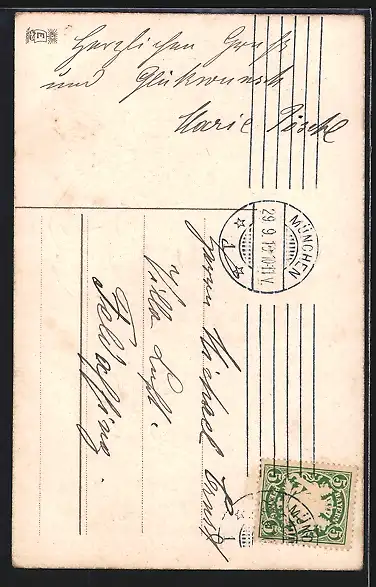 Herzlichen Gruß
und Glükwunsch
Marie Pöschl
MÜNCHEN
29.9.
1
Herrn Michael
Villa Luft.
Feldaffing.
5
5